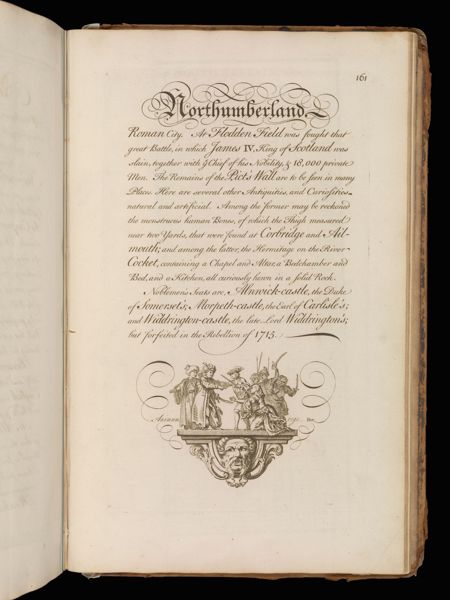 161
Northumberland.
Roman City. At Flodden Field was fought that
great Battle, in which James IV, King of Scotland was
slain, together with ye Chief of his Nobility, & 18,000 private
Men. The Remains of the Pict's Wall are to be seen in many
Places. Here are several other Antiquities, and Curiosities
natural and artificial. Among the former may be reckoned
the monstrous human Bones, of which the Thigh measured
near two Yards, that were found at Corbridge and Ail-
mouth; and among the latter, the Hermitage on the River
Cocket, containing a Chapel and Altar, a Bedchamber and
Bed, and a Kitchen, all curiously hewn in a solid Rock.
Noblemen's Seats are. Alnwick-castle, the Duke
of Somerset's; Morpeth-castle, the Earl of Carlisle's;
and Widdrington-castle, the late Lord Widdrington's;
but forfeited in the Rebellion of 1715.